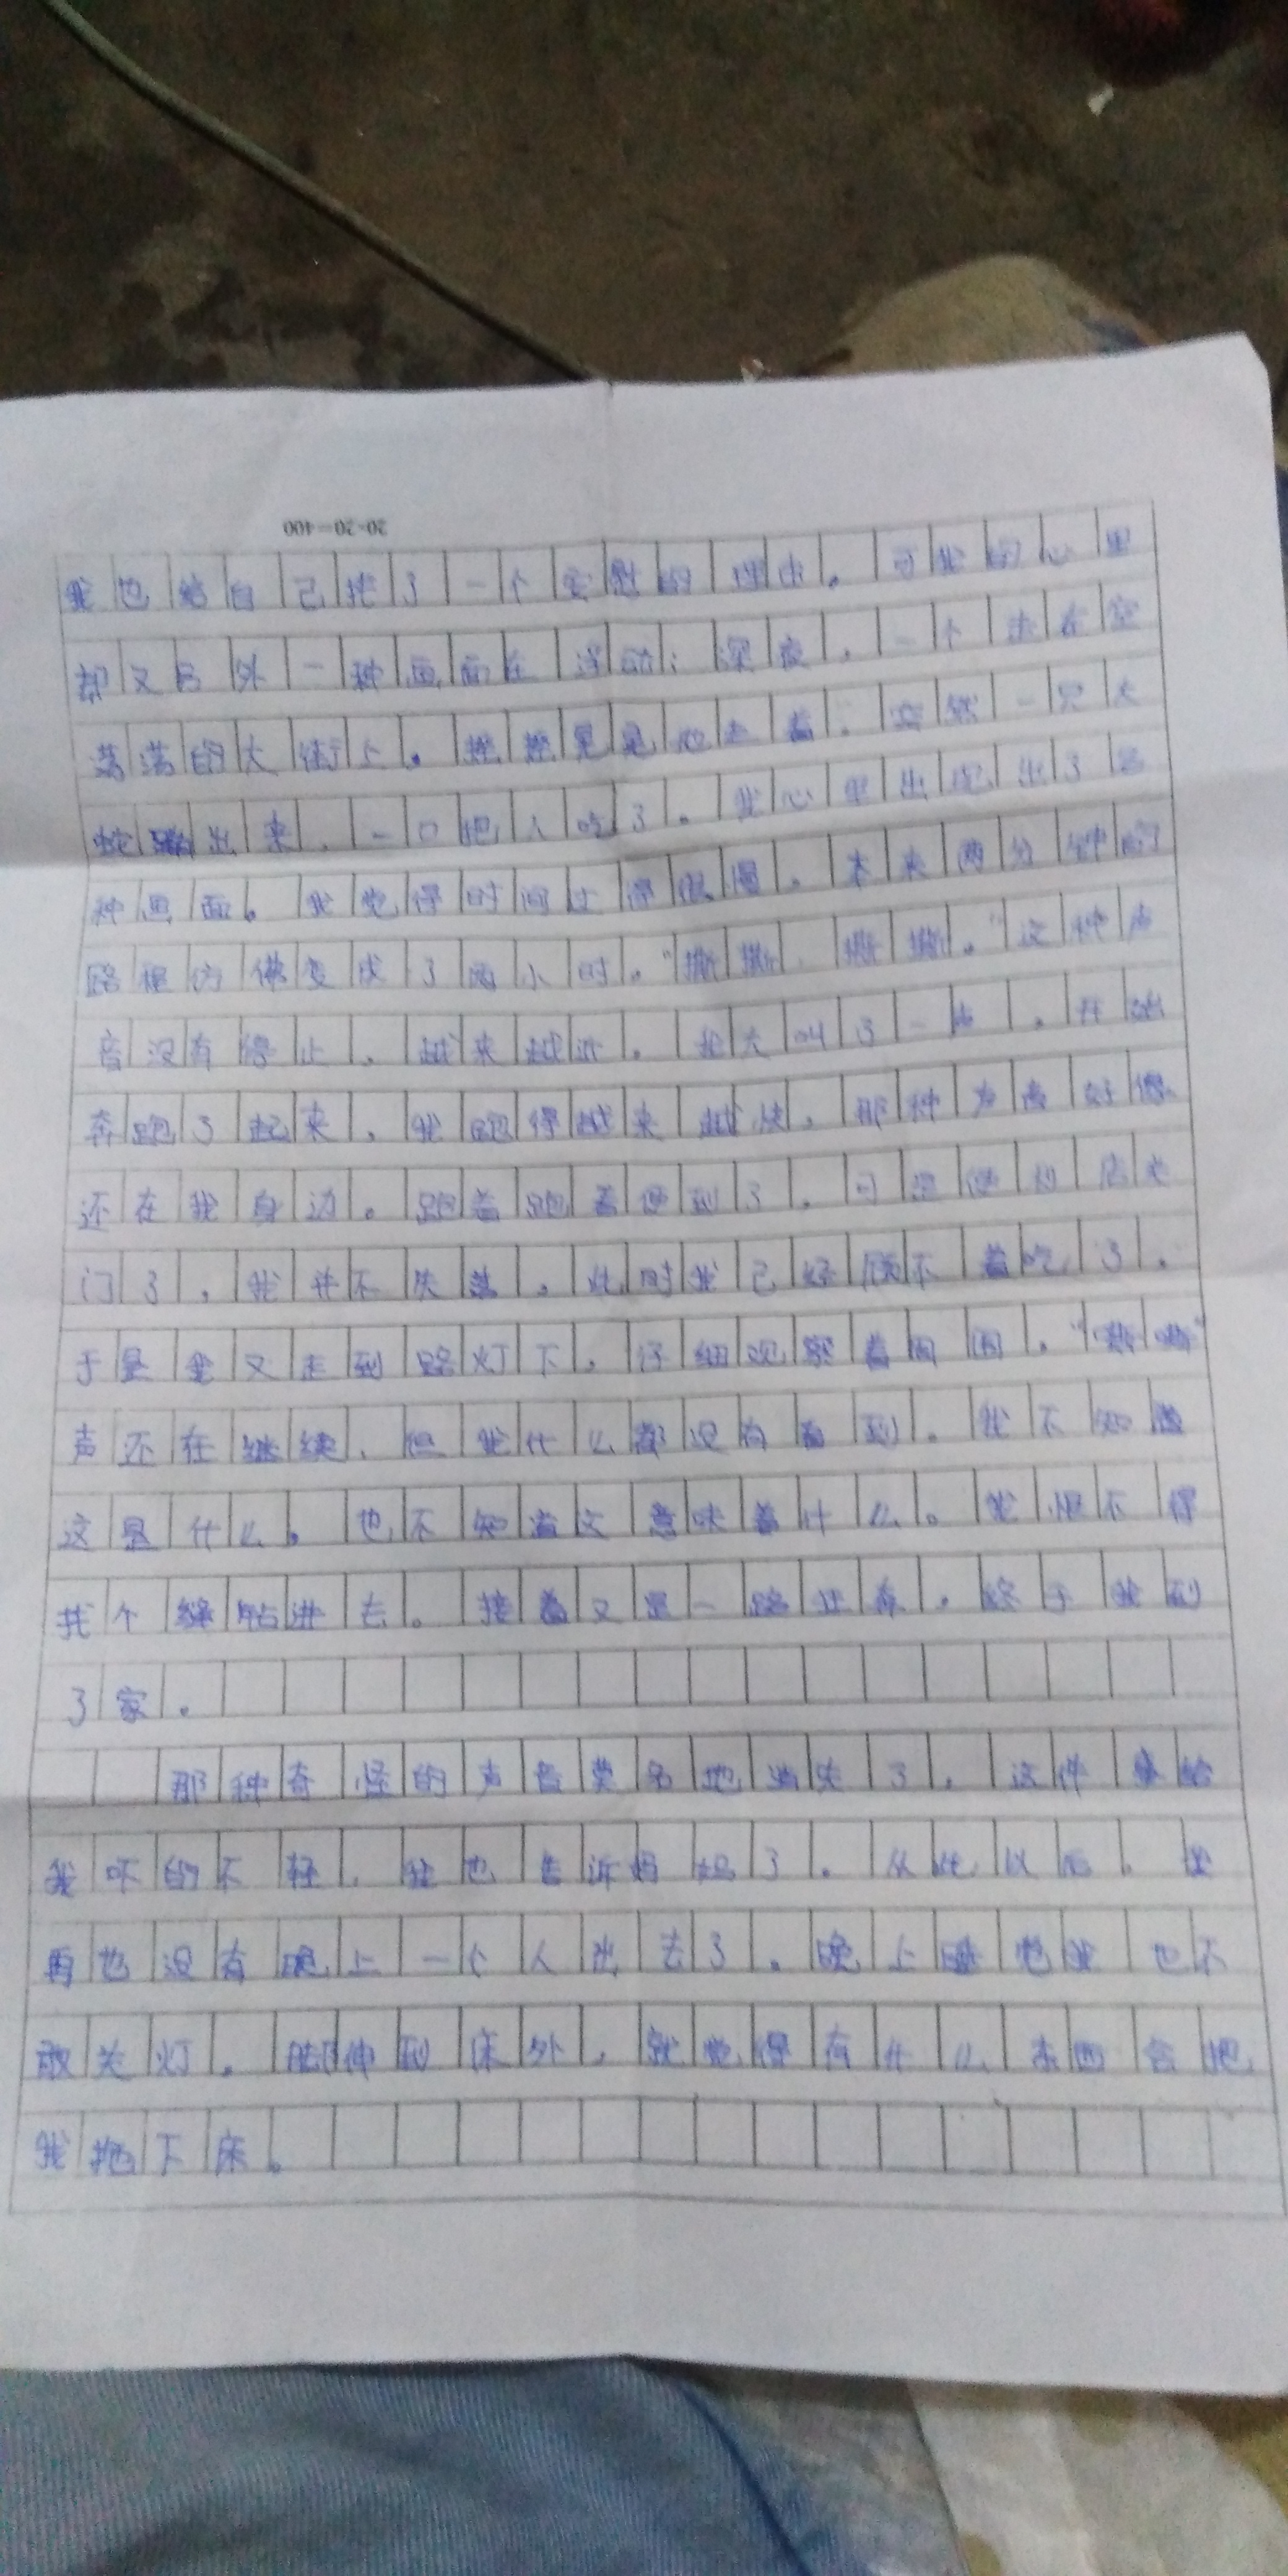 20×20=400
我也给自己找了一个安慰的理由。可我的心里
却又另外一种画面在浮动：深夜，一个走在空
荡荡的大街上。摇摇晃晃地走着。突然一只大
蛇蹿出来，一口把人吃了。我心里出现出了各
种画面。我觉得时间过得很慢。本来两分钟的
路程仿佛变成了两小时。“撕撕、撕撕。”这种声
音没有停止，越来越近。我大叫了一声，开始
奔跑了起来，我跑得越来越快，那种声音好像
还在我身边。跑着跑着便到了。可是便利店关
门了，我并不失落。此时我已经顾不着吃了。
于是我又走到路灯下，仔细观察着周围。“嘶嘶”
声还在继续，但我什么都没有看到。我不知道
这是什么。也不知道这意味着什么。我恨不得
找个缝钻进去。接着又是一路狂奔，终于我到
了家。
那种奇怪的声音莫名地消失了。这件事给
我吓的不轻，我也告诉妈妈了。从此以后，我
再也没有晚上一个人出去了。晚上睡觉我也不
敢关灯。脚伸到床外，就觉得有什么东西会把
我拖下床。